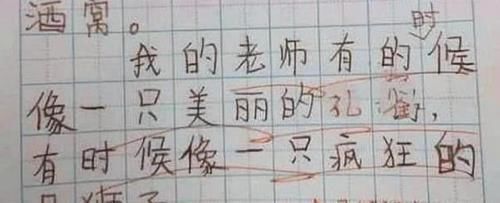 酒窝。
时
我的老师有的候
像一只美丽的孔雀,
有时候像一只疯狂的
狮子